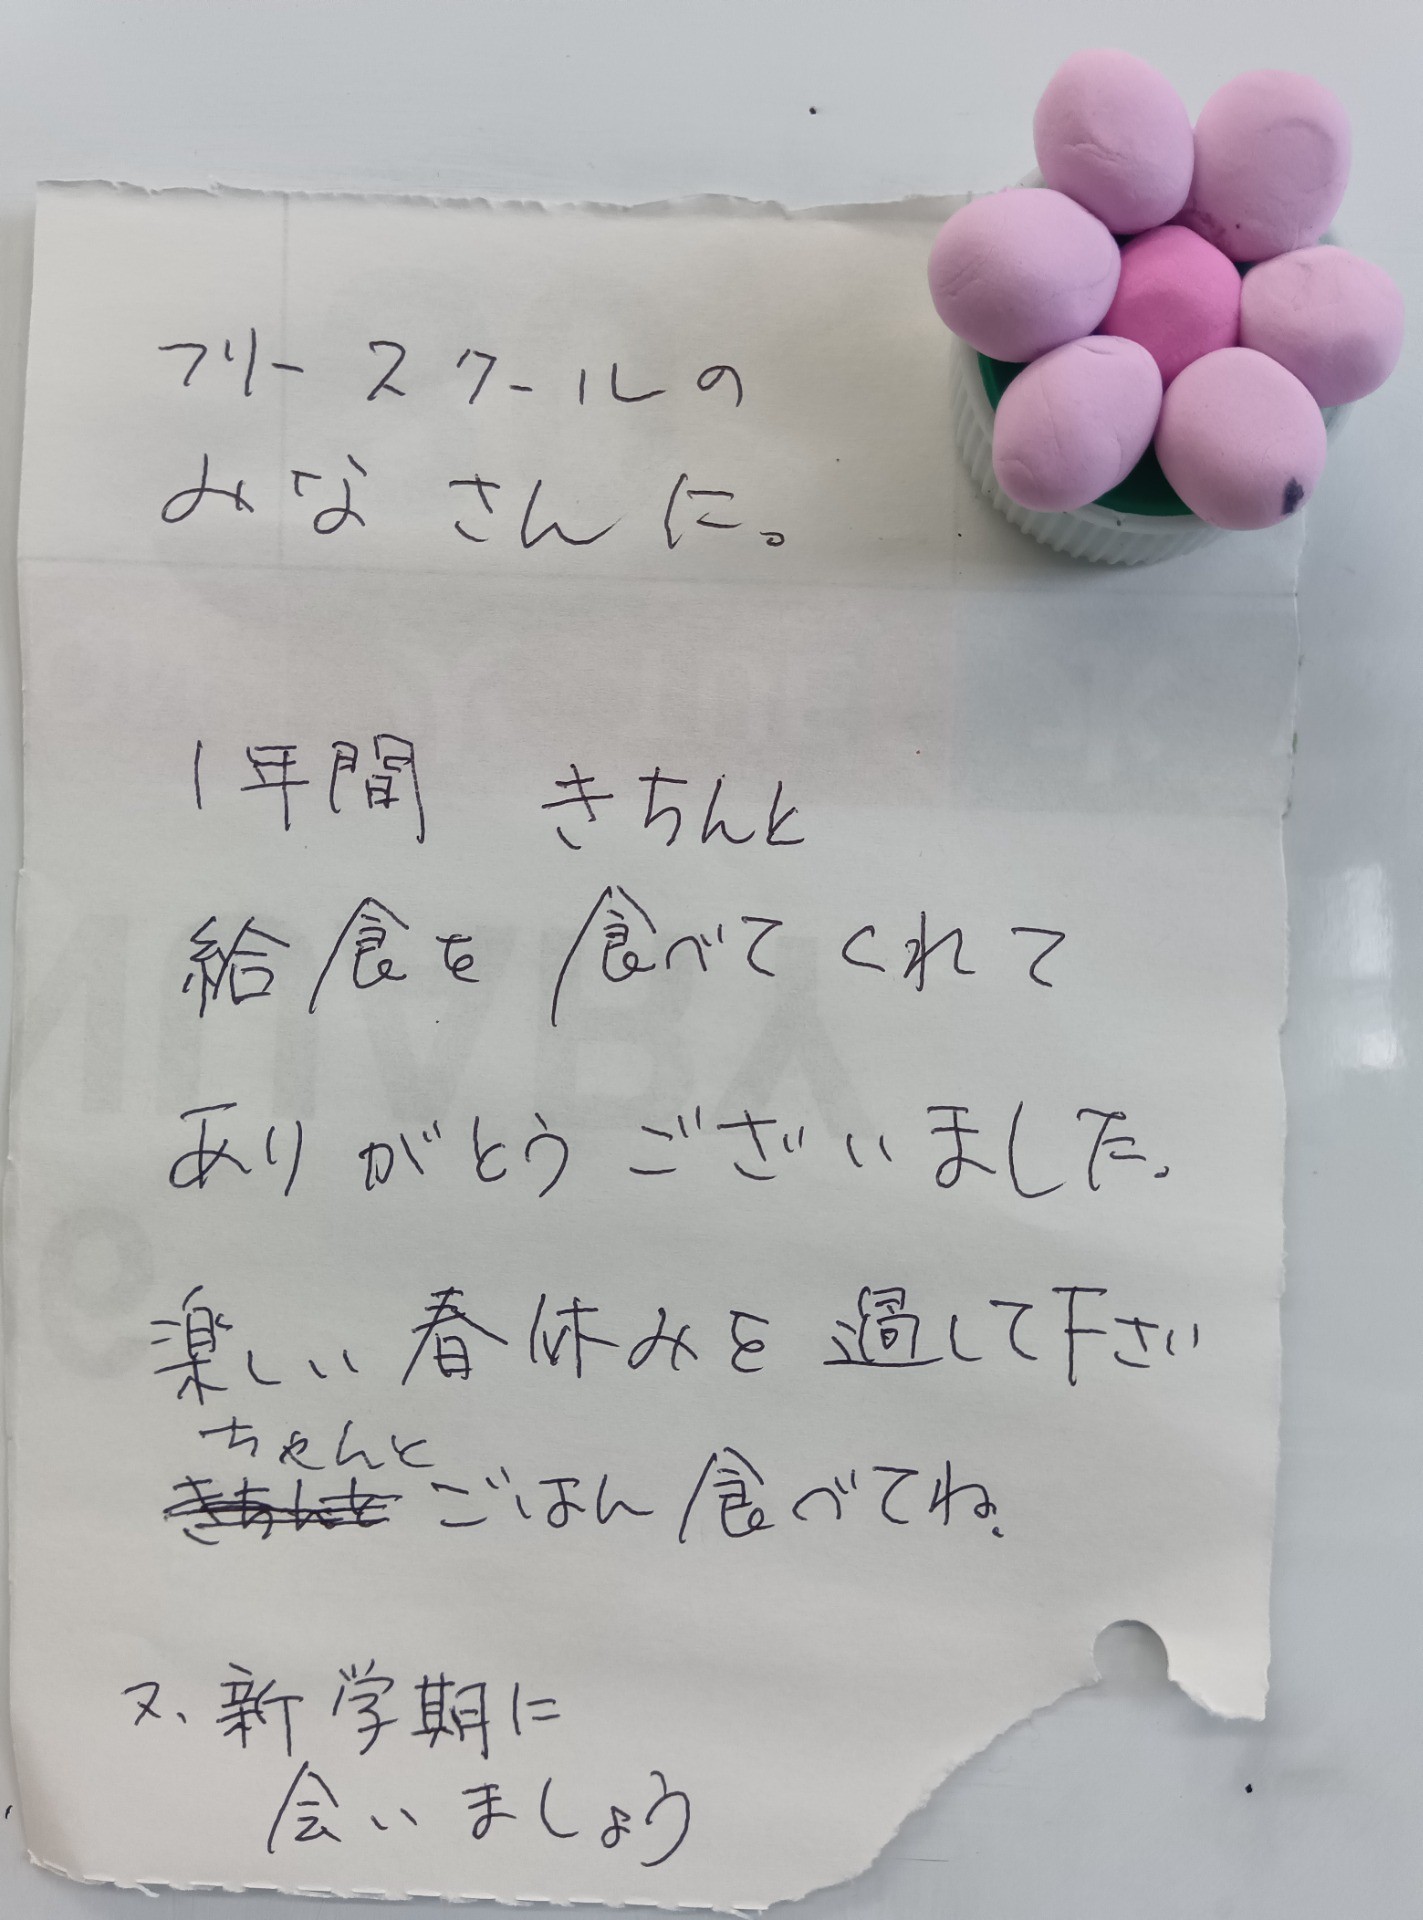 フリースクールの
みなさんに。
1年間 きちんと
給食を食べてくれて
ありがとうございました。
楽しい春休みを過して下さい
ちゃんと
きちんと ごはん食べてね。
又、新学期に
会いましょう